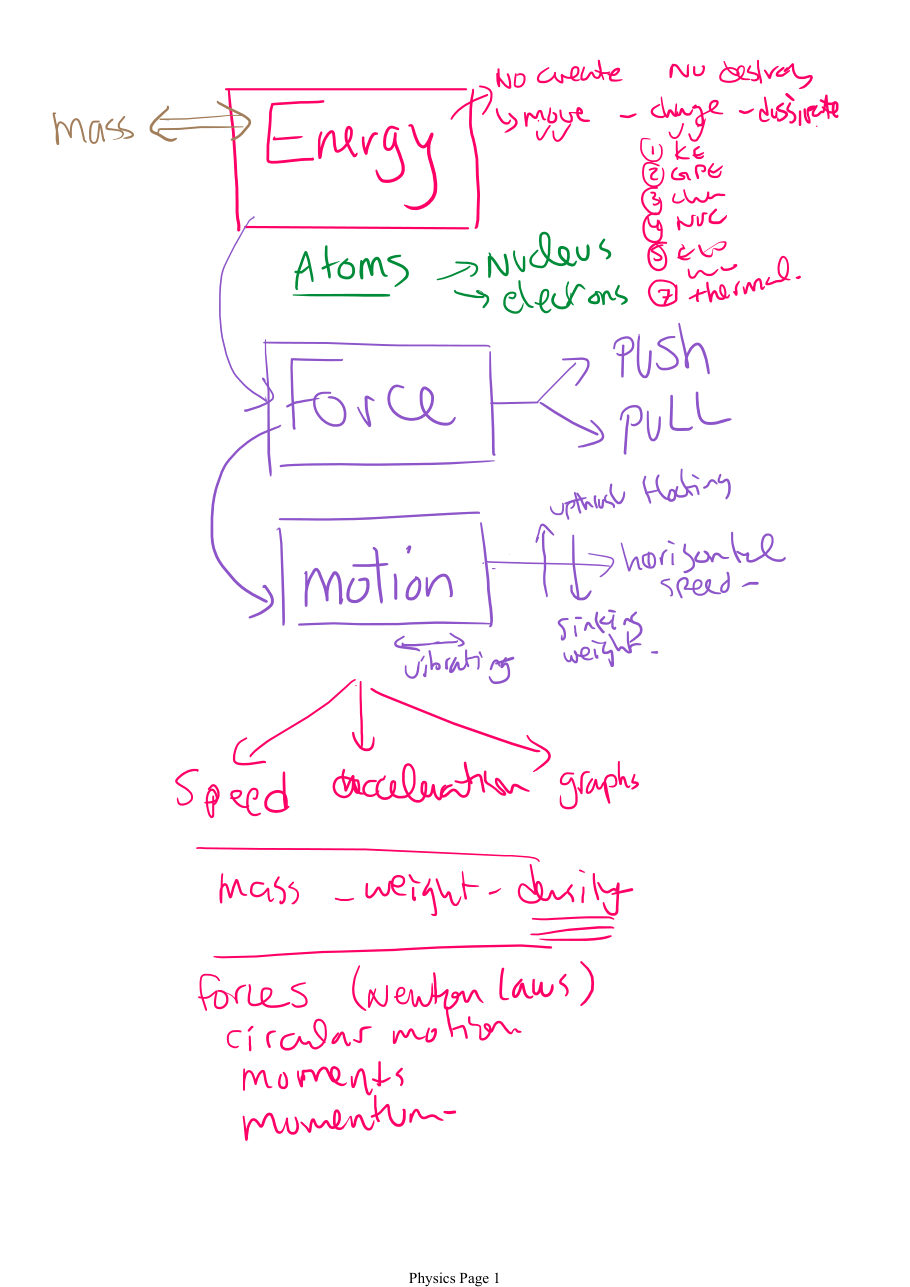 No create No destroy
mass Energy move - change - dissipate
① KE
② GPE
③ chem
④ NUC
⑤
⑦ thermal.
Atoms Nucleus
electrons
Force PUSH
PULL
upthrust floating
motion horizontal
speed -
sinking
vibrating weight -
Speed acceleration graphs
mass - weight - density
forces (Newton Laws)
circular motion
moments
momentum -
Physics Page 1